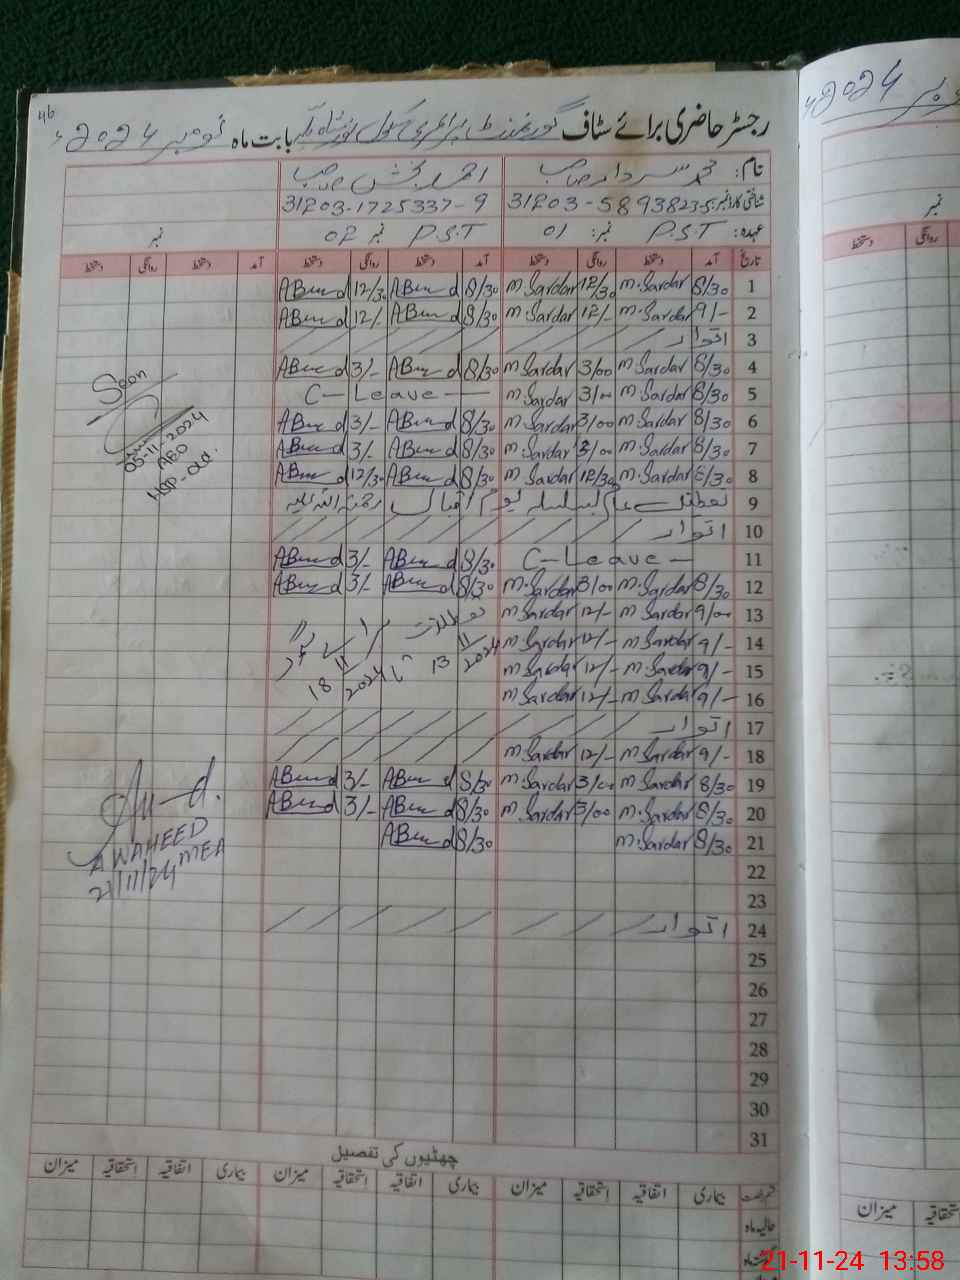 46
رجسٹر حاضری برائے سٹاف گورنمنٹ پرائمری سکول بابت ماہ نومبر 2024ء
نام: محمد سردار صاحب احمد بخش صاحب
شناختی کارڈ نمبر: 31203-5893823-5 31203-1725337-9
عہدہ: P.S.T نمبر: 01 P.S.T نمبر 02 نمبر
تاریخ آمد دستخط روانگی دستخط آمد دستخط روانگی دستخط آمد دستخط روانگی دستخط
1 8/30 M.Sardar 12/30 M.Sardar 8/30 12/30
2 9/- M.Sardar 12/- M.Sardar 8/30 12/-
3 اتوار
4 8/30 M.Sardar 3/00 M.Sardar 8/30 3/-
5 8/30 M.Sardar 3/00 M.Sardar C-Leave
6 8/30 M.Sardar 3/00 M.Sardar 8/30 3/-
7 8/30 M.Sardar 3/00 M.Sardar 8/30 3/-
8 8/30 M.Sardar 12/30 M.Sardar 8/30 12/30
9 تعطیل عام بسلسلہ یوم اقبال رحمتہ اللہ علیہ
10 اتوار
11 C-Leave 8/30 3/-
12 8/30 M.Sardar 3/00 M.Sardar 8/30 3/-
13 9/00 M.Sardar 12/- M.Sardar
14 9/- M.Sardar 12/- M.Sardar
15 9/- M.Sardar 12/- M.Sardar
16 9/- M.Sardar 12/- M.Sardar
تعطیلات
13 11/2024 تا 18 11/2024
17 اتوار
18 9/- M.Sardar 12/- M.Sardar
19 8/30 M.Sardar 3/00 M.Sardar 8/30 3/-
20 8/30 M.Sardar 3/00 M.Sardar 8/30 3/-
21 8/30 M.Sardar 8/30
22
23
24 اتوار
25
26
27
28
29
30
31
Seen
05-11-2024
AEO
A WAHEED
MEA
21/11/24
چھٹیوں کی تفصیل
قسم رخصت بیماری اتفاقیہ استحقاقیہ میزان بیماری اتفاقیہ استحقاقیہ میزان بیماری اتفاقیہ استحقاقیہ میزان
حالیہ ماہ
2024
نمبر
روانگی دستخط
استحقاقیہ میزان
21-11-24 13:58